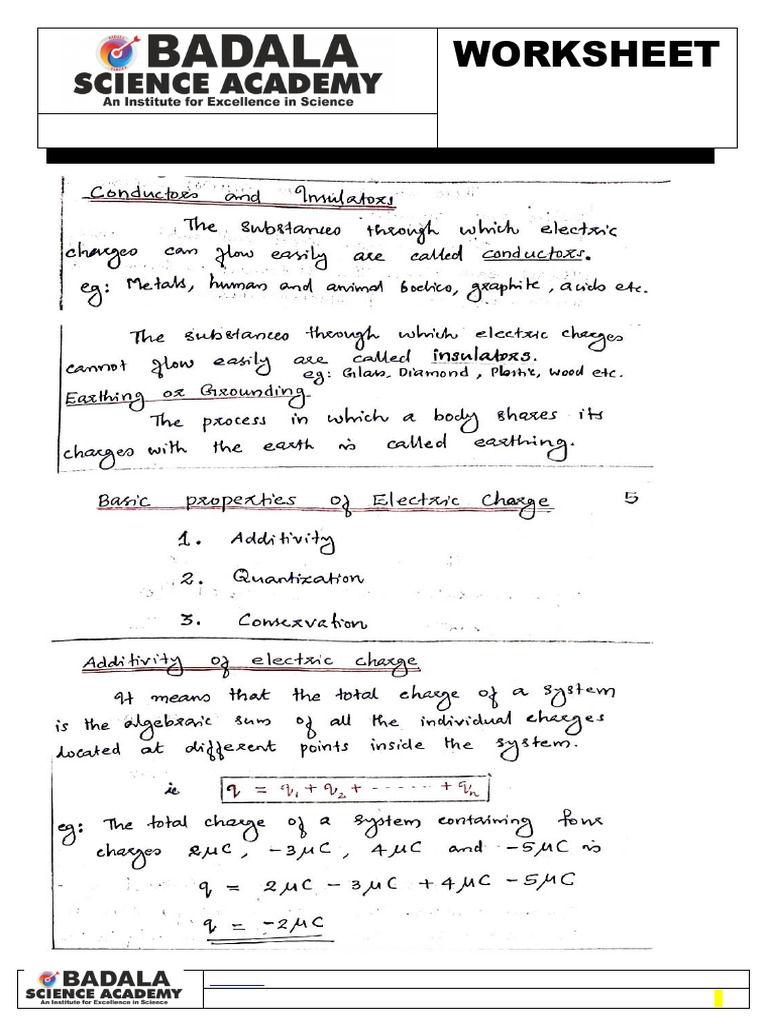 BADALA
SCIENCE ACADEMY
An Institute for Excellence in Science
WORKSHEET
Conductors and Insulators
The substances through which electric
charges can flow easily are called conductors.
eg: Metals, human and animal bodies, graphite, acids etc.
The substances through which electric charges
cannot flow easily are called insulators.
eg: Glass, Diamond, Plastic, wood etc.
Earthing or Grounding
The process in which a body shares its
charges with the earth is called earthing.
Basic properties of Electric Charge 5
1. Additivity
2. Quantization
3. Conservation
Additivity of electric charge
It means that the total charge of a system
is the algebraic sum of all the individual charges
located at different points inside the system.
ie q = q₁ + q₂ + ------ + qₙ
eg: The total charge of a system containing four
charges 2μC, -3μC, 4μC and -5μC is
q = 2μC - 3μC + 4μC - 5μC
q = -2μC
BADALA
SCIENCE ACADEMY
An Institute for Excellence in Science